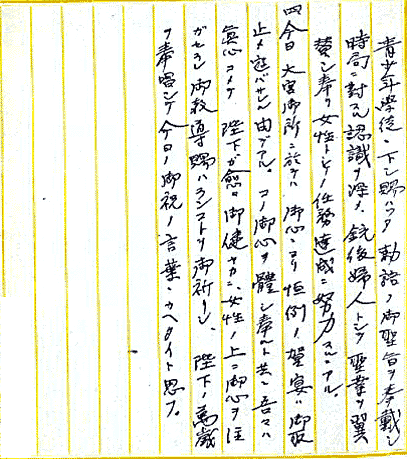 青少年學徒ニ下シ賜ハツタ勅語ノ御聖旨ヲ奉戴シ
時局ニ對スル認識ヲ深メ、銃後婦人トシテ聖業ヲ翼
賛シ奉リ女性トシテノ任務達成ニ努力スルニアル。
四今日 大宮御所ニ於テハ 御心ニヨリ恒例ノ賀宴ハ御取
止メ遊バサレル由デアル。コノ御心ヲ體シ奉ルト共ニ吾々ハ
眞心コメテ 陛下ガ愈々御健ヤカニ、女性ノ上ニ御心ヲ注
ガセラレ御教導賜ハランコトヲ御祈リシ、 陛下ノ萬歳
ヲ奉唱シテ今日ノ御祝ノ言葉ニカヘタイト思フ。